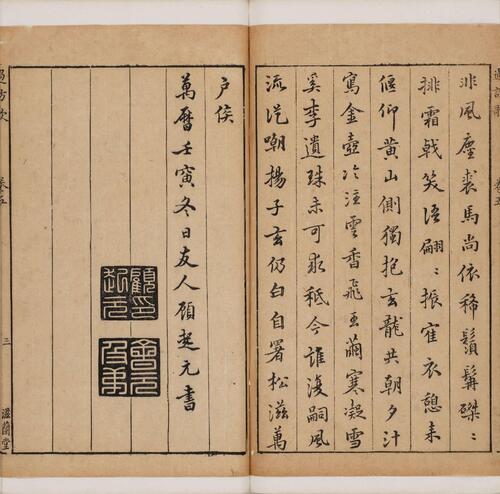 非風塵裘馬尚依稀鬚髯磔〻
排霜戟笑語翩〻振隺衣憩来
偃仰黄山側獨抱玄龍共朝夕汁
寫金壺冷注雲香飛玉繭寒凝雪
奚李遺珠未可求秪今誰復嗣風
流從嘲揚子玄仍白自署松滋萬
户侯
萬曆壬寅冬日友人顧起元書
顧印起元
卷五
三
滋蘭堂